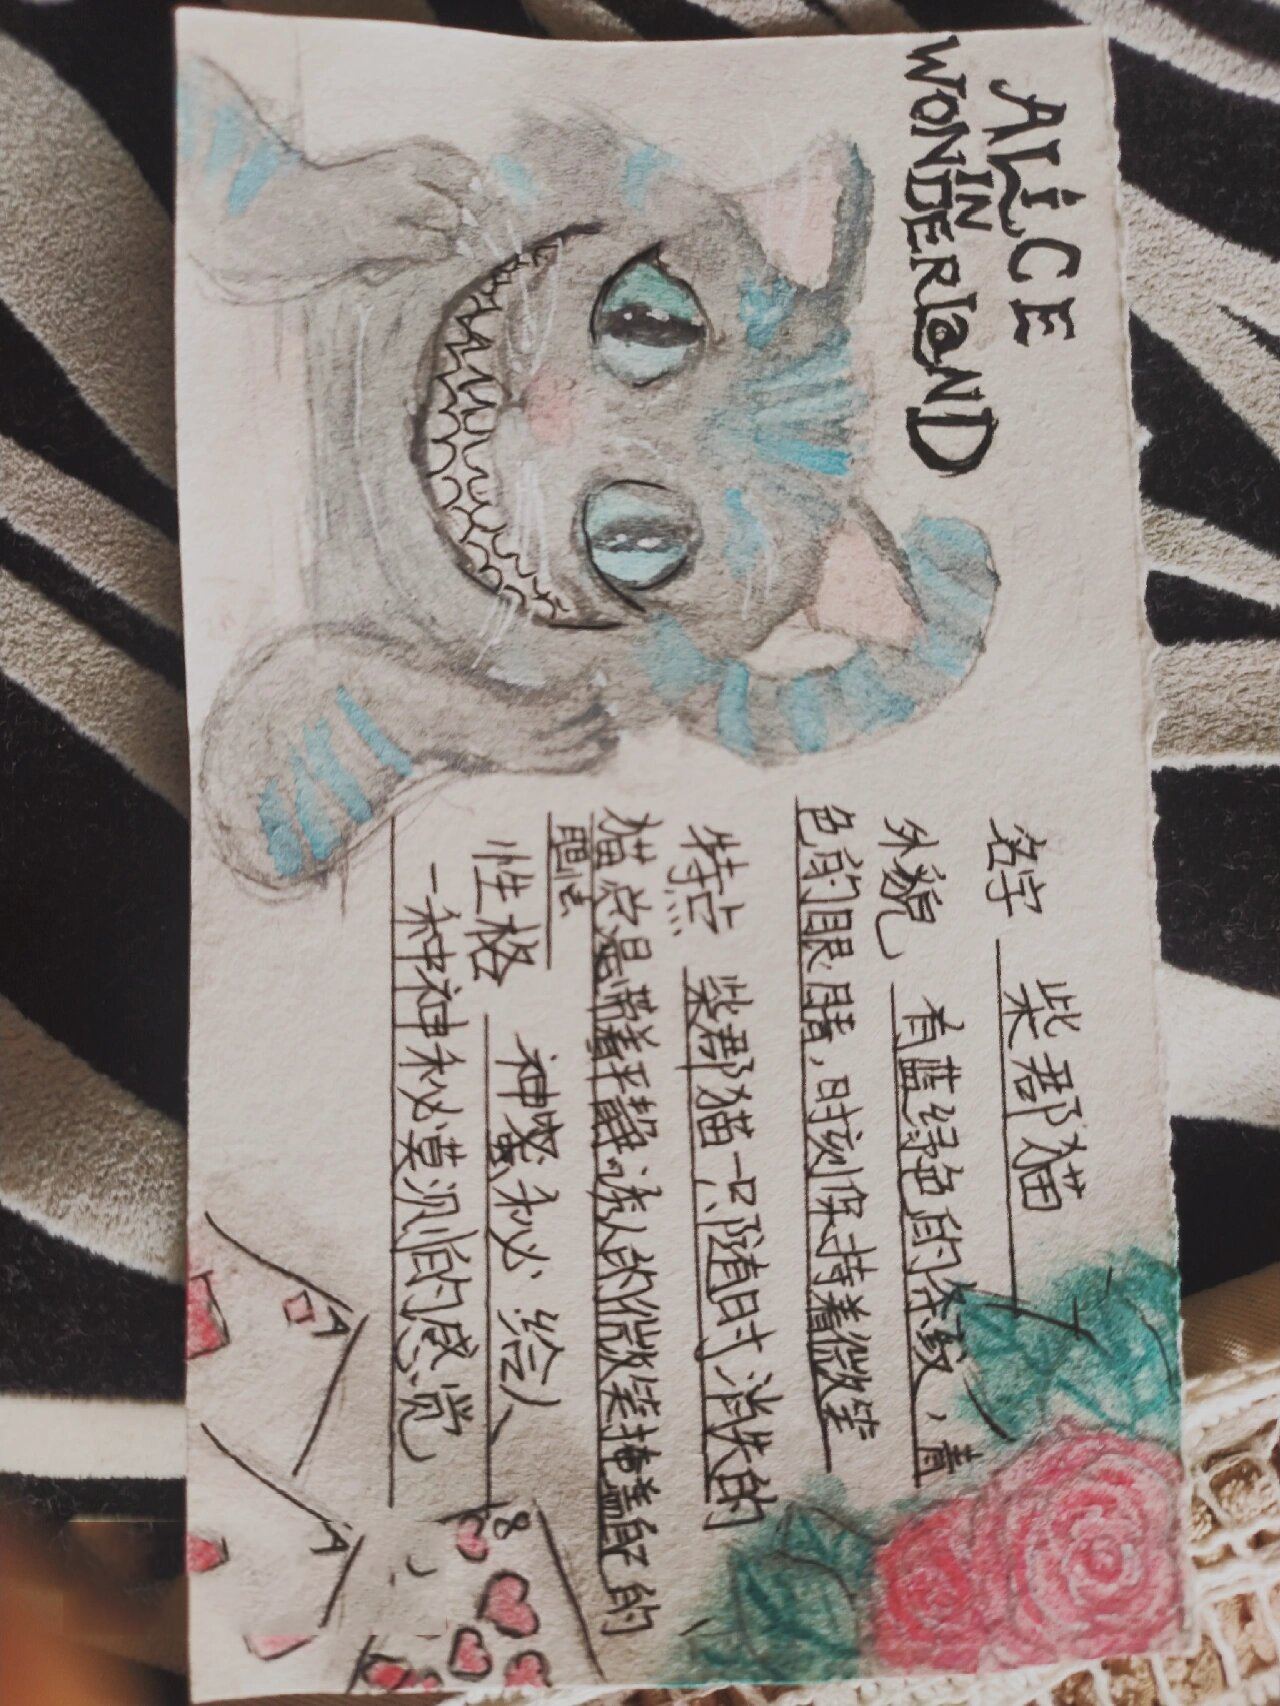 ALiCE
IN
WONDERLaND
名字 柴郡猫
外貌 有蓝绿色的条纹，青
色的眼睛，时刻保持着微笑
特点 柴郡猫一只随时消失的
猫总是带着平静诱人的微笑掩盖它的
性格 神秘、给人
一种神秘莫测的感觉
A
A
8